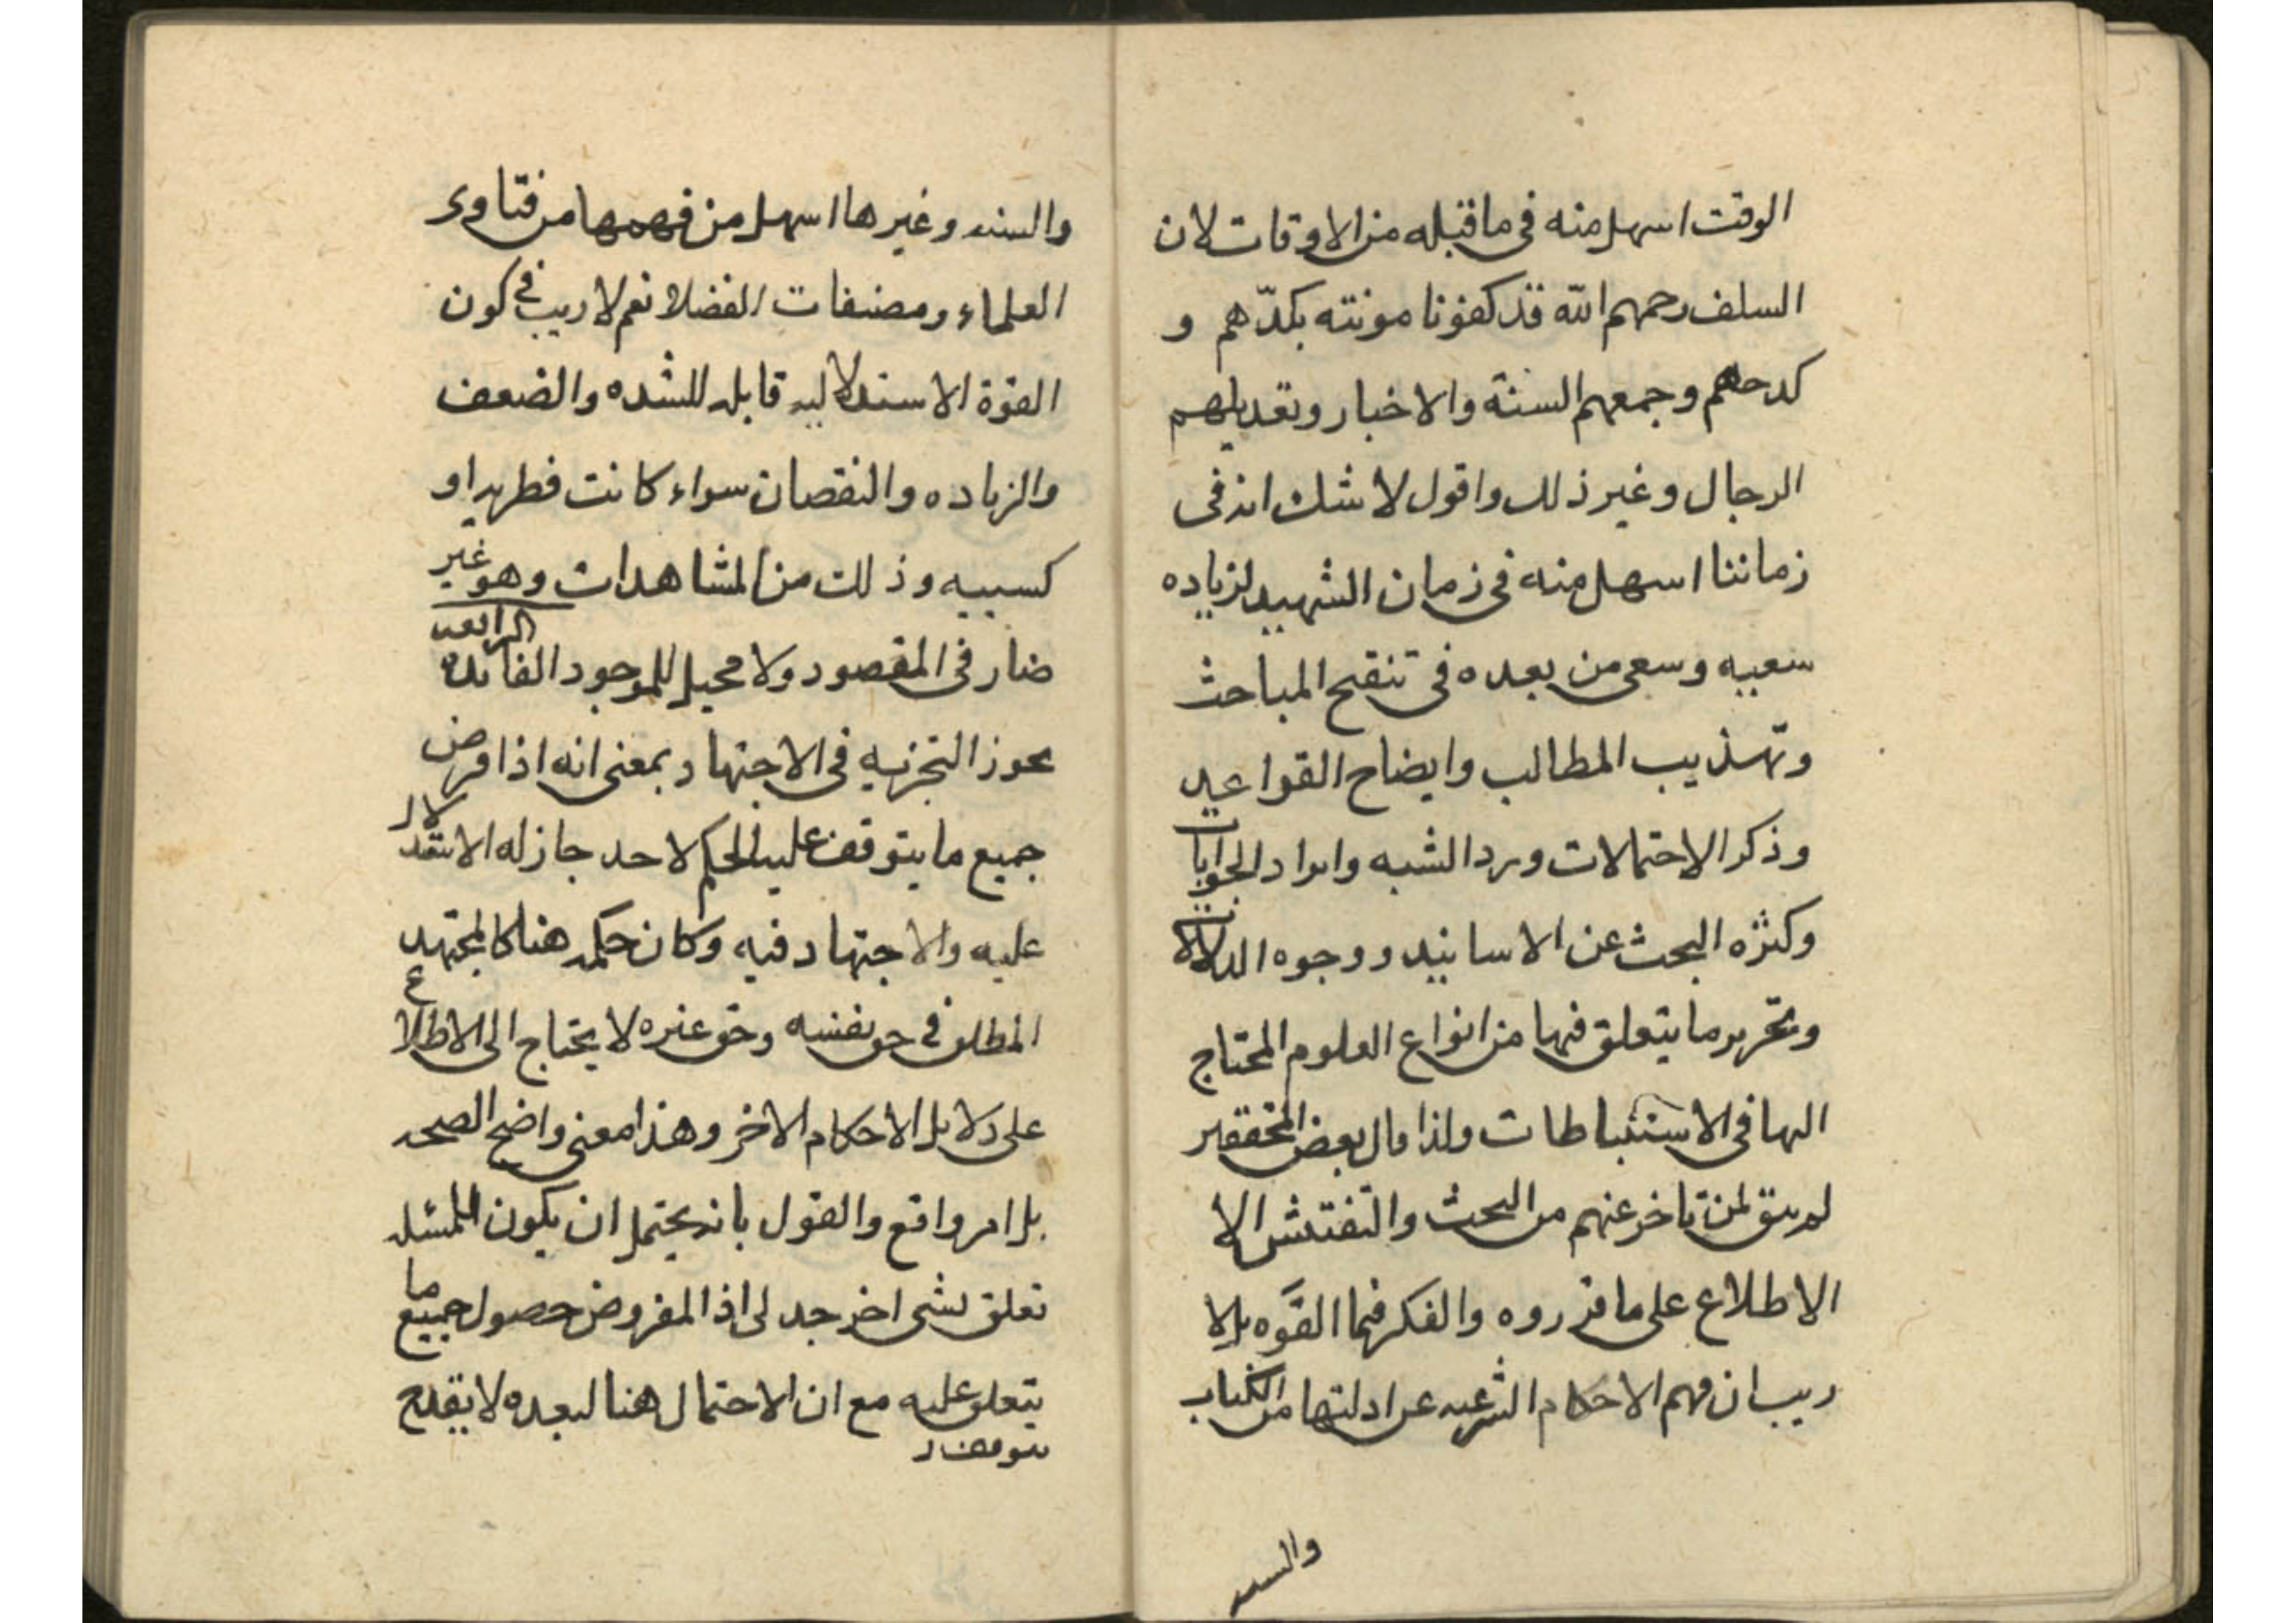 الوقت اسهل منه فى ما قبله من الاوقات لان
السلف رحمهم الله قد كفونا مونته بكدّهم و
كدحهم وجمعهم السنة والاخبار وتعديلهم
الرجال وغير ذلك واقول لا شك انه فى
زماننا اسهل منه فى زمان الشهيد لزياده
سعيه وسعى من بعده فى تنقيح المباحث
وتهذيب المطالب وايضاح القواعد
وذكر الاحتمالات ورد الشبه وايراد الجوابات
وكثره البحث عن الاسانيد ووجوه الدلالات
وتحرير ما يتعلق فيها من انواع العلوم المحتاج
اليها فى الاستنباطات ولذا قال بعض المحققين
لم يبق لمن تاخر عنهم من البحث والتفتيش الا
الاطلاع على ما قرروه والفكر فيما القوه بلا
ريب ان فهم الاحكام الشرعيه عن ادلتها من الكتاب
والسنه
والسنه وغيرها اسهل من فهمها من فتاوى
العلماء ومصنفات الفضلا نعم لا ريب فى كون
القوة الاستدلاليه قابله للشده والضعف
والزياده والنقصان سواء كانت فطريه او
كسبيه وذلك من المشاهدات وهو غير
ضار فى المقصود ولا محيل للموجود الفائده الرابعه
يجوز التجزيه فى الاجتهاد بمعنى انه اذا فرض
جميع ما يتوقف عليه الحكم لاحد جاز له الاستقلال
عليه والاجتهاد فيه وكان حكمه هنا كالمجتهد
المطلق فى حق نفسه وحق غيره لا يحتاج الى الاطلاع
على دلايل الاحكام الاخر وهذا معنى واضح الصحه
بل امر واقع والقول بانه يحتمل ان يكون للمسئله
تعلق بشى اخر جدلى اذ المفروض حصول جميع ما
يتعلق عليه مع ان الاحتمال هنا لبعده لا يقدح
يتوقف